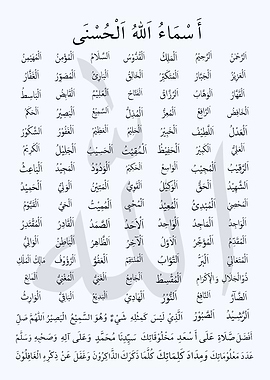 أَسْمَاءُ اللهُ الْحُسْنَى
الرَّحْمٰنُ الرَّحِيْمُ الْمَلِكُ الْقُدُّوْسُ السَّلَامُ الْمُؤْمِنُ الْمُهَيْمِنُ
الْعَزِيْزُ الْجَبَّارُ الْمُتَكَبِّرُ الْخَالِقُ الْبَارِئُ الْمُصَوِّرُ الْغَفَّارُ
الْقَهَّارُ الْوَهَّابُ الرَّزَّاقُ الْفَتَّاحُ الْعَلِيْمُ الْقَابِضُ الْبَاسِطُ
الْخَافِضُ الرَّافِعُ الْمُعِزُّ الْمُذِلُّ السَّمِيْعُ الْبَصِيْرُ الْحَكَمُ
الْعَدْلُ اللَّطِيْفُ الْخَبِيْرُ الْحَلِيْمُ الْعَظِيْمُ الْغَفُوْرُ الشَّكُوْرُ
الْعَلِيُّ الْكَبِيْرُ الْحَفِيْظُ الْمُقِيْتُ الْحَسِيْبُ الْجَلِيْلُ الْكَرِيْمُ
الرَّقِيْبُ الْمُجِيْبُ الْوَاسِعُ الْحَكِيْمُ الْوَدُوْدُ الْمَجِيْدُ الْبَاعِثُ
الشَّهِيْدُ الْحَقُّ الْوَكِيْلُ الْقَوِيُّ الْمَتِيْنُ الْوَلِيُّ الْحَمِيْدُ
الْمُحْصِيْ الْمُبْدِئُ الْمُعِيْدُ الْمُحْيِي الْمُمِيْتُ الْحَيُّ الْقَيُّوْمُ
الْوَاجِدُ الْمَاجِدُ الْوَاحِدُ الْأَحَدُ الصَّمَدُ الْقَادِرُ الْمُقْتَدِرُ
الْمُقَدِّمُ الْمُؤَخِّرُ الْأَوَّلُ الْآخِرُ الظَّاهِرُ الْبَاطِنُ الْوَالِيُ
الْمُتَعَالِ الْبَرُّ التَّوَّابُ الْمُنْتَقِمُ الْعَفُوُّ الرَّؤُوْفُ مَالِكُ الْمُلْكِ
ذُو الْجَلَالِ وَالْإِكْرَامِ الْمُقْسِطُ الْجَامِعُ الْغَنِيُّ الْمُغْنِيُ الْمَانِعُ
الضَّآرُّ النَّافِعُ النُّوْرُ الْهَادِيْ الْبَدِيْعُ الْبَاقِيْ الْوَارِثُ
الرَّشِيْدُ الصَّبُوْرُ الَّذِيْ لَيْسَ كَمِثْلِهِ شَيْءٌ وَهُوَ السَّمِيْعُ الْبَصِيْرُ اَللّٰهُمَّ صَلِّ
أَفْضَلَ صَلَاةٍ عَلَى أَسْعَدِ مَخْلُوْقَاتِكَ سَيِّدِنَا مُحَمَّدٍ وَعَلَى آلِهِ وَصَحْبِهِ وَسَلِّمْ
عَدَدَ مَعْلُوْمَاتِكَ وَمِدَادَ كَلِمَاتِكَ كُلَّمَا ذَكَرَكَ الذَّاكِرُوْنَ وَغَفَلَ عَنْ ذِكْرِهِ الْغَافِلُوْنَ